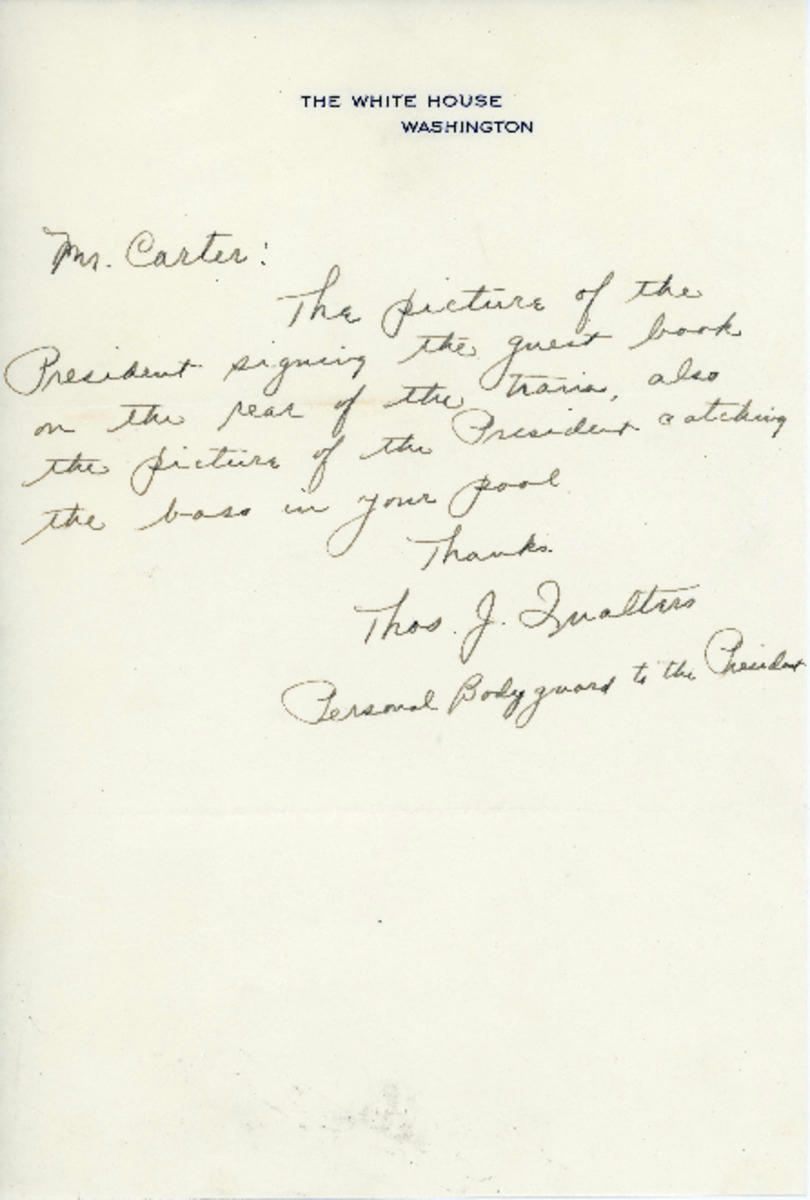 THE WHITE HOUSE
WASHINGTON
Mr. Carter:
The picture of the
President signing the guest book
on the rear of the train, also
the picture of the President catching
the bass in your pool
Thanks.
Thos. J. Qualters
Personal Bodyguard to the President